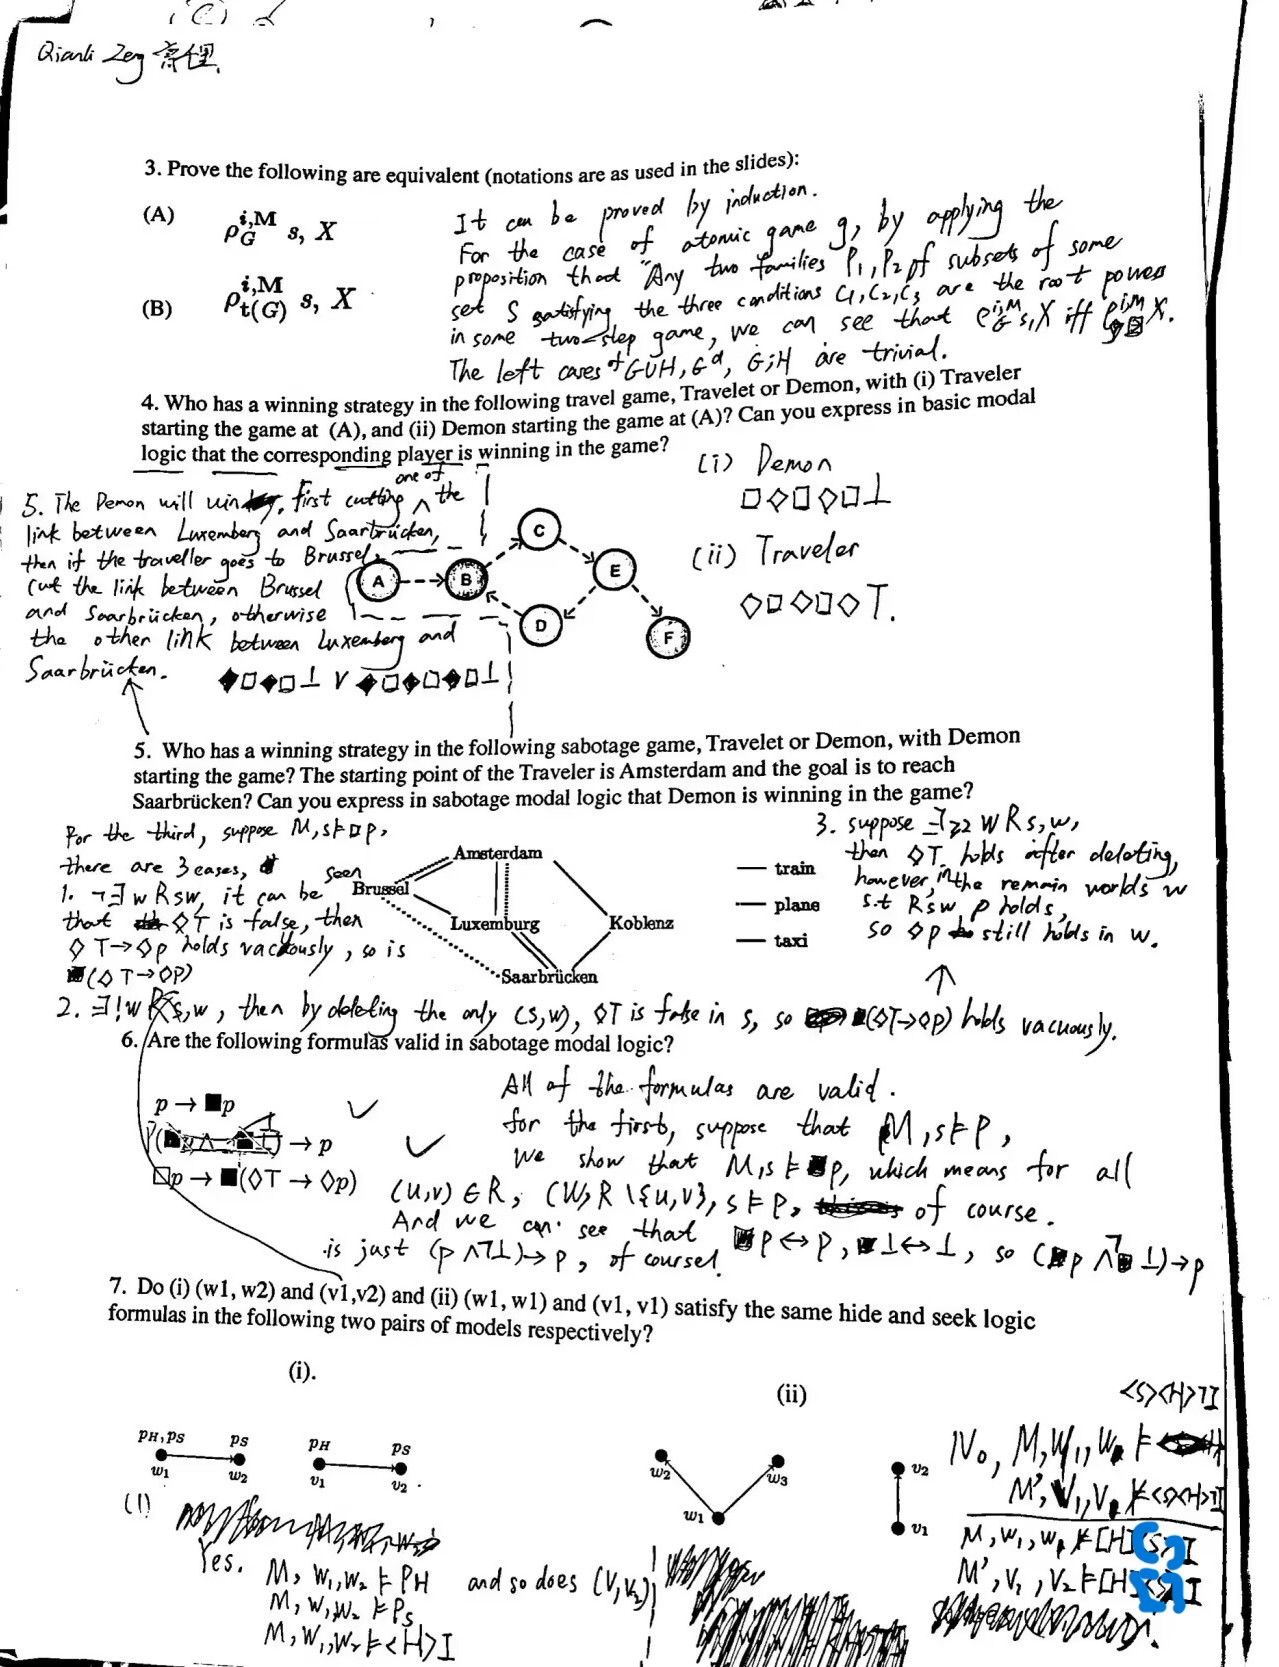 Qianli Zeng
3. Prove the following are equivalent (notations are as used in the slides):
(A) ρ_G^{i,M} s, X
(B) ρ_{t(G)}^{i,M} s, X
It can be proved by induction.
For the case of atomic game g, by applying the
proposition that "Any two families P1, P2 of subsets of some
set S satisfying the three conditions C1, C2, C3 are the root powers
in some two-step game, we can see that ρ_G^{i,M} s, X iff X.
The left cases of G∪H, G^d, G;H are trivial.
4. Who has a winning strategy in the following travel game, Travelet or Demon, with (i) Traveler
starting the game at (A), and (ii) Demon starting the game at (A)? Can you express in basic modal
logic that the corresponding player is winning in the game?
(i) Demon
□◇□◇□⊥
(ii) Traveler
◇□◇□◇T.
A B C D E F
5. The Demon will win, first cutting one of the
link between Luxemberg and Saarbrücken,
then if the traveller goes to Brussel,
cut the link between Brussel
and Saarbrücken, otherwise
the other link between Luxemberg and
Saarbrücken.
◆□◆□⊥ ∨ ◆□◆□◆□⊥
5. Who has a winning strategy in the following sabotage game, Travelet or Demon, with Demon
starting the game? The starting point of the Traveler is Amsterdam and the goal is to reach
Saarbrücken? Can you express in sabotage modal logic that Demon is winning in the game?
For the third, suppose M,s⊨□p,
there are 3 cases,
1. ¬∃wRsw, it can be seen
that ◇T is false, then
◇T→◇p holds vacuously, so is
■(◇T→◇p)
Amsterdam
Brussel
Luxemburg
Koblenz
Saarbrücken
train
plane
taxi
3. suppose ∃≥2 w Rs,w,
then ◇T holds after deleting,
however, in the remain worlds w
s.t Rsw p holds,
so ◇p still holds in w.
2. ∃!w Rs,w, then by deleting the only (s,w), ◇T is false in s, so ■(◇T→◇p) holds vacuously.
6. Are the following formulas valid in sabotage modal logic?
p → ■p ✓
→ p ✓
□p → ■(◇T → ◇p)
All of the formulas are valid.
for the first, suppose that M,s⊨p,
We show that M,s⊨■p, which means for all
(u,v)∈R, (W,R\{u,v}, s⊨p, of course.
And we can see that ■p↔p, ■⊥↔⊥, so (■p∧¬■⊥)→p
is just (p∧¬⊥)→p, of course.
7. Do (i) (w1, w2) and (v1,v2) and (ii) (w1, w1) and (v1, v1) satisfy the same hide and seek logic
formulas in the following two pairs of models respectively?
(i).
(ii)
pH,pS pS pH pS
w1 w2 v1 v2
w2 w3 w1
v2
v1
(1)
Yes. M, w1,w2⊨PH and so does (V1,V2)
M, w1,w2⊨Ps
M, w1,w2⊨<H>I
<S><H>¬I
No, M,W1,W1⊨
M',V1,V1⊭<S><H>¬I
M,w1,w1⊭[H] I
M',v1,v2⊨[H] I